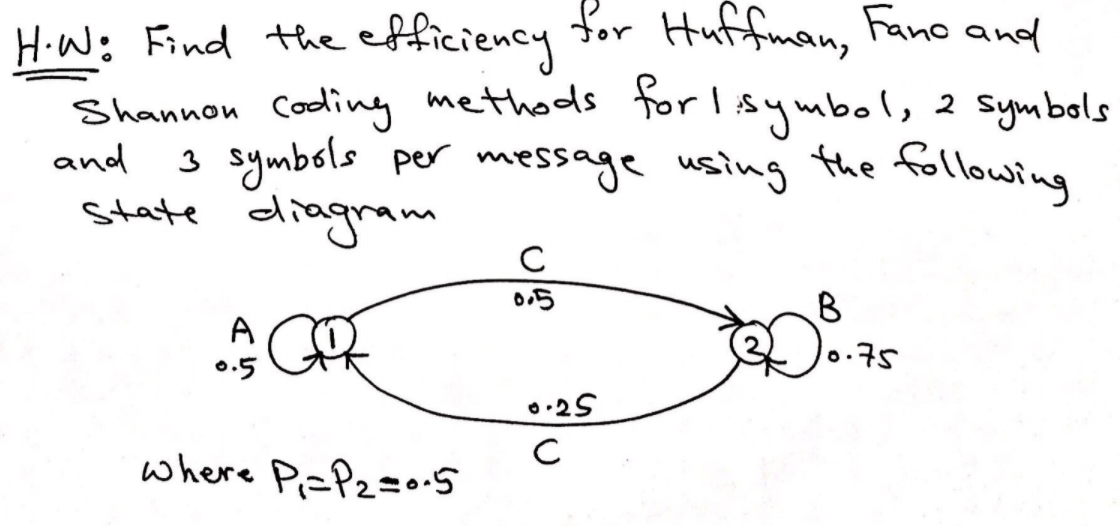 H.W: Find the efficiency for Huffman, Fano and
Shannon coding methods for 1 symbol, 2 symbols
and 3 symbols per message using the following
state diagram
C
0.5
A
0.5
1
2
B
0.75
0.25
C
where P₁=P₂=0.5